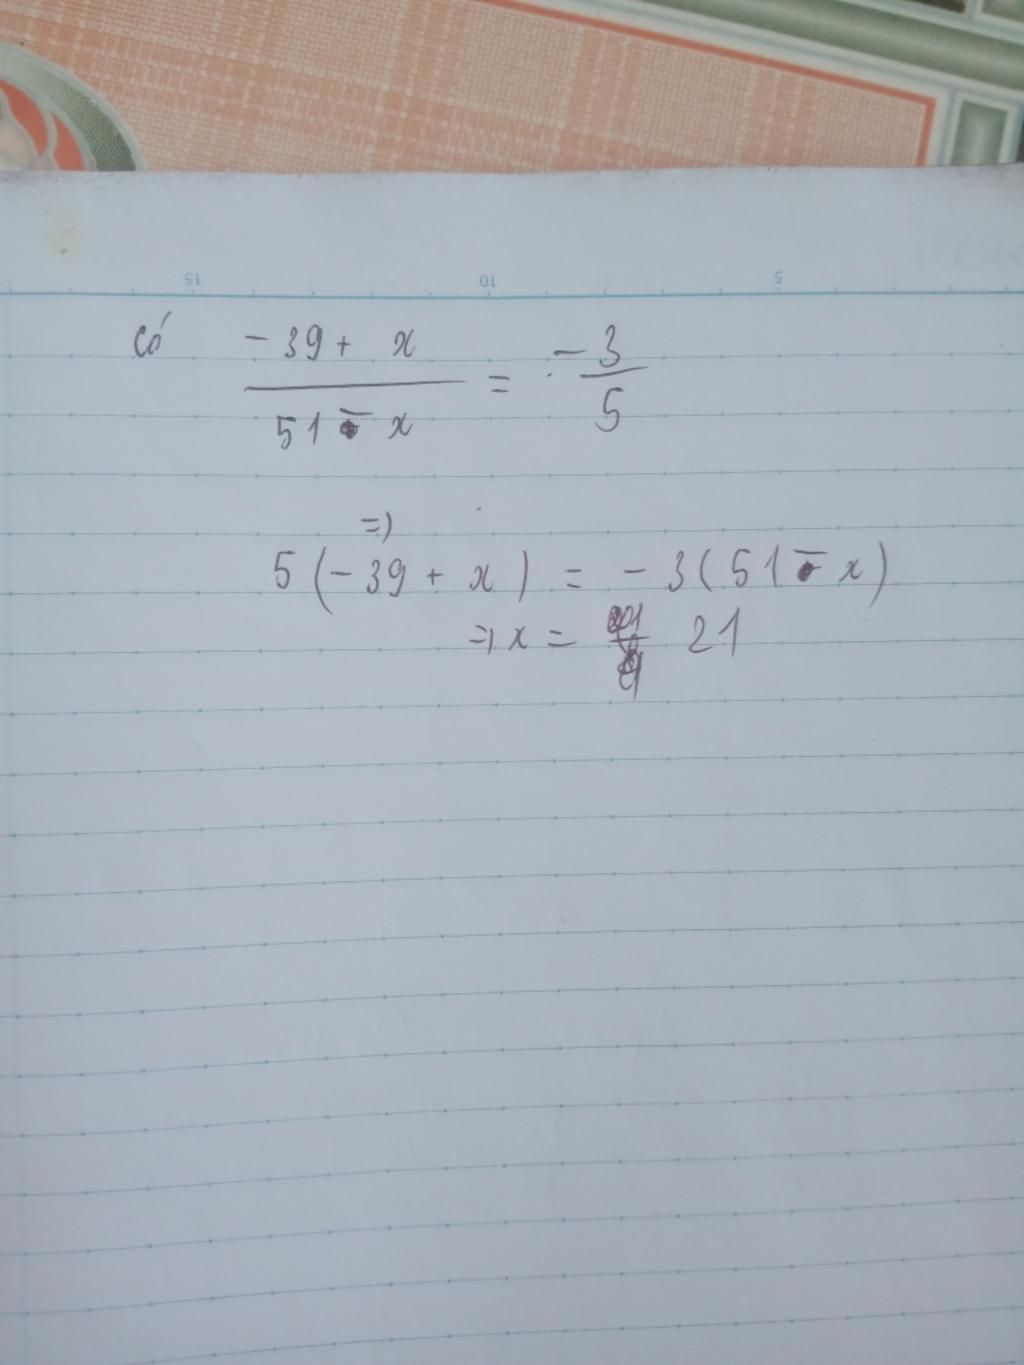 15 10 5
có -39 + x / 51 - x = -3 / 5
=)
5 (-39 + x) = -3 (51 - x)
=) x = 21